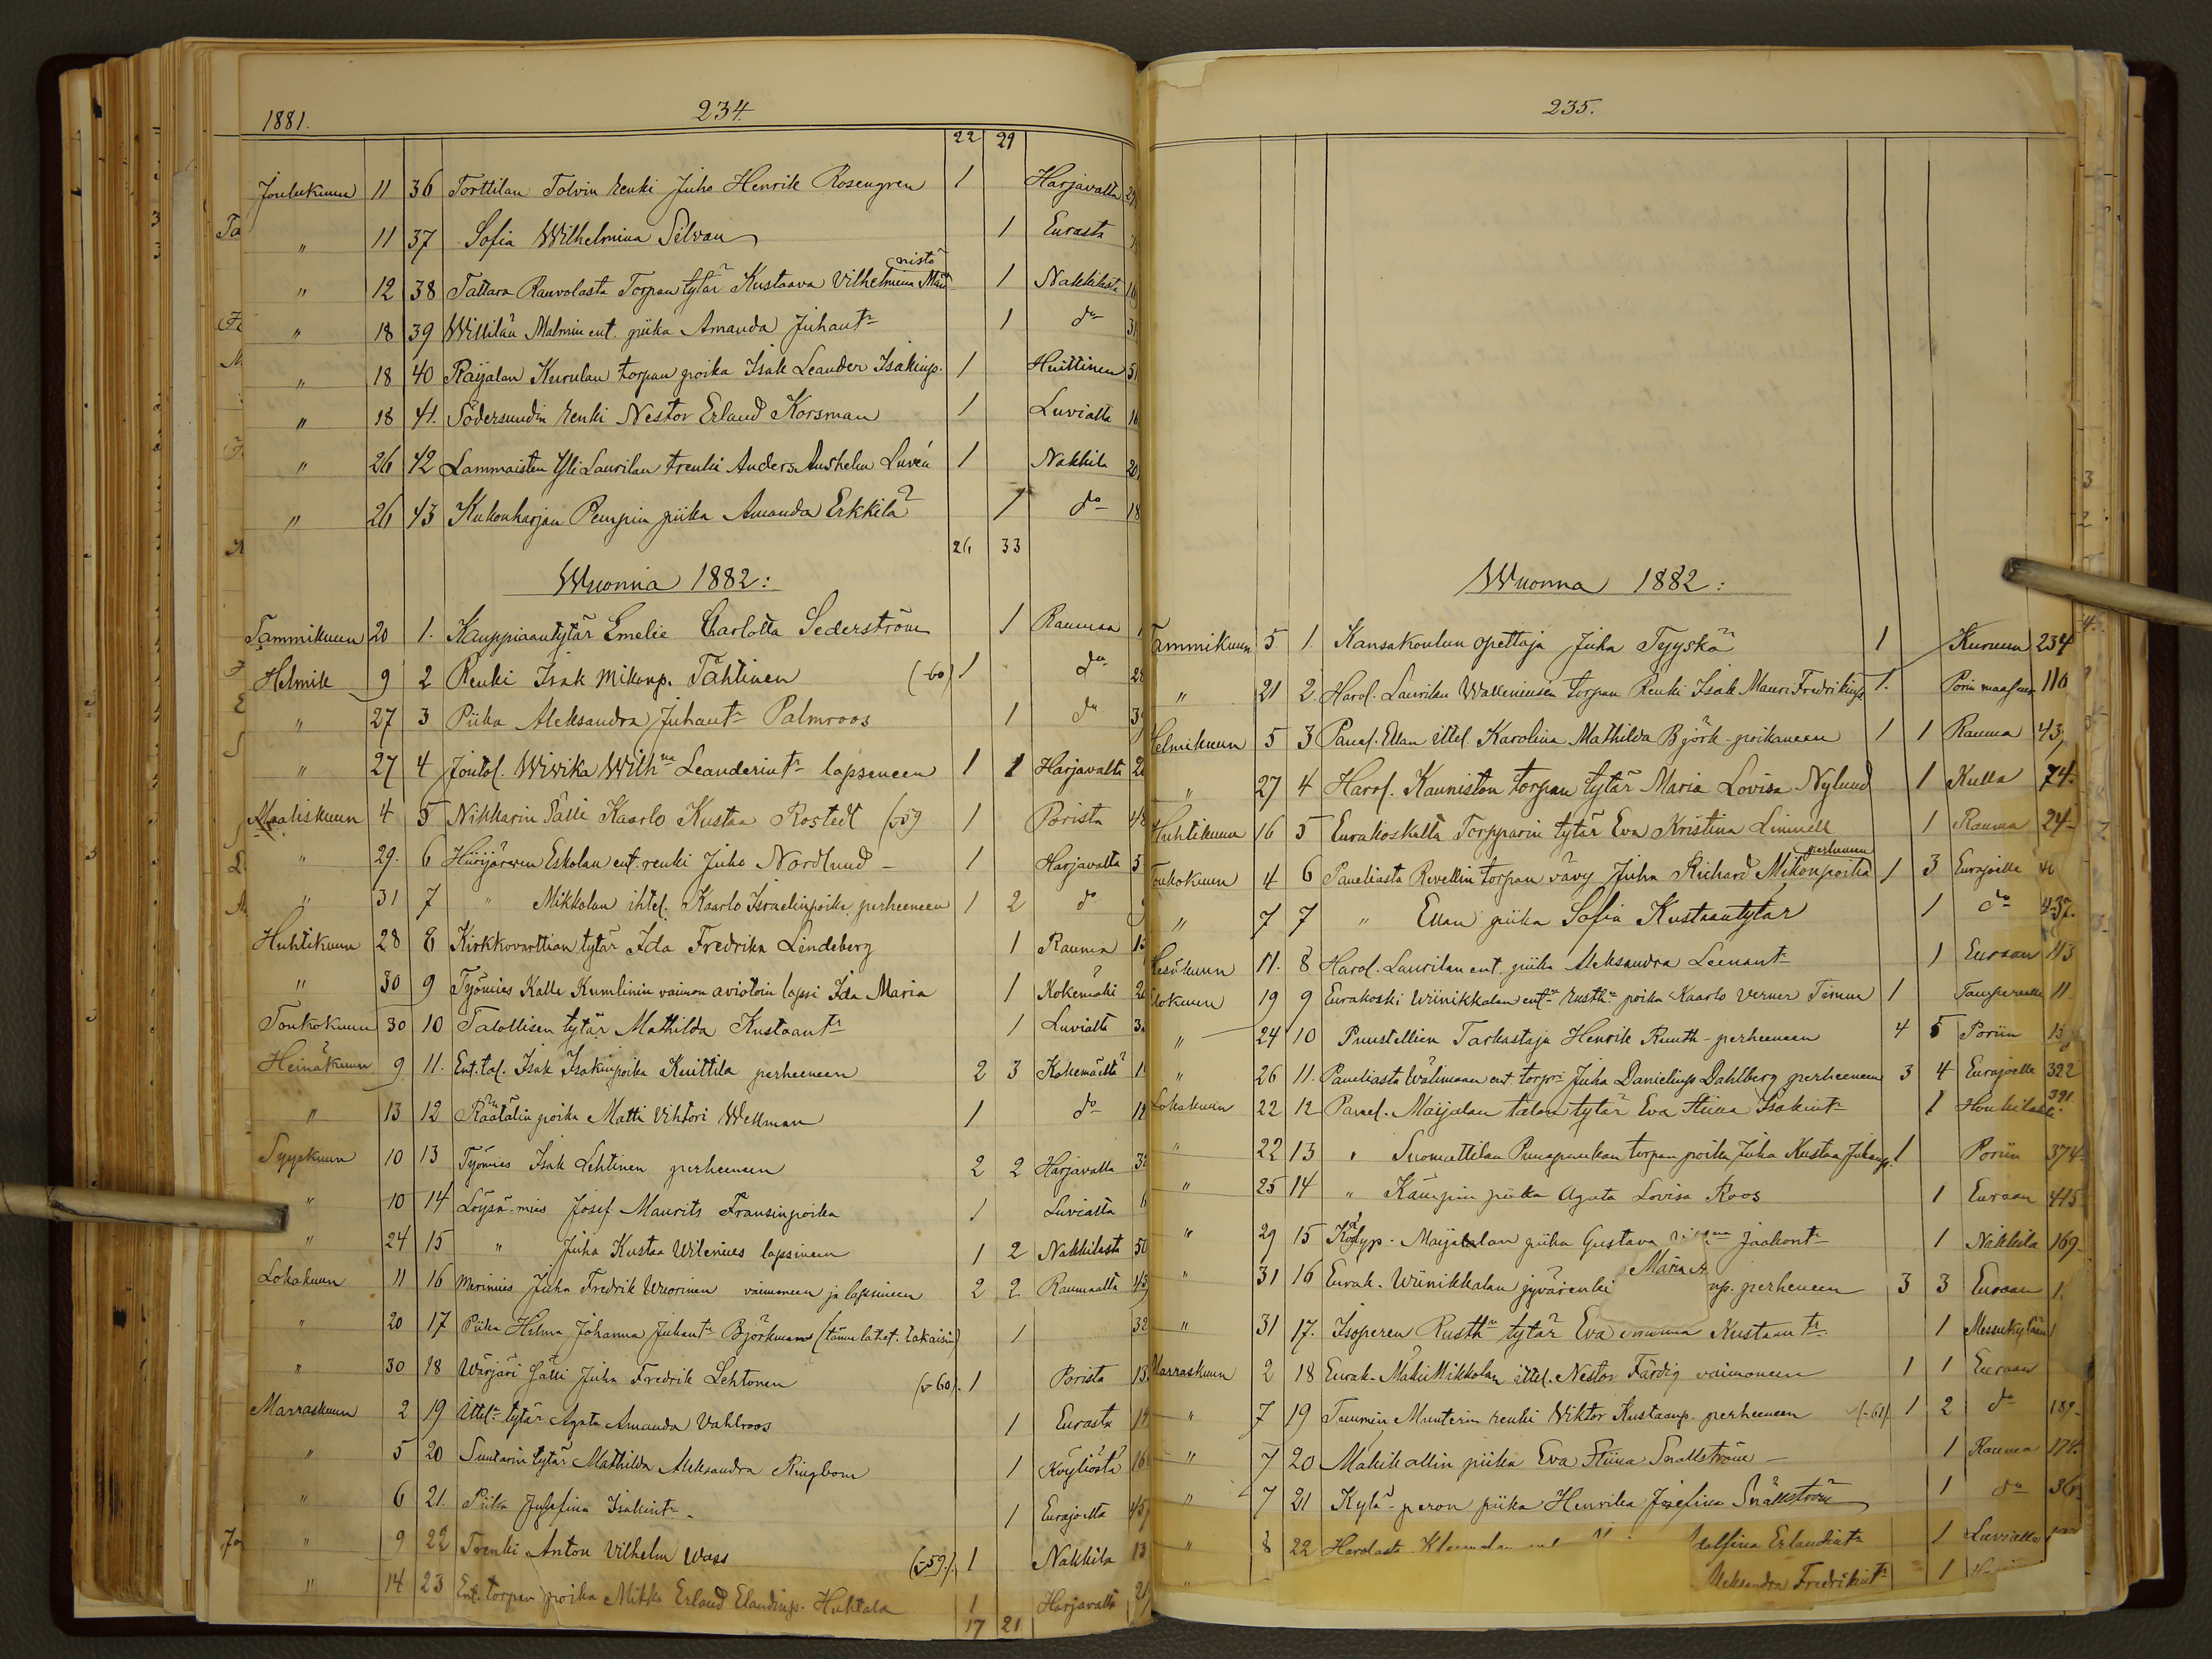 1881.
234.
22 29
Joulukuun 11 36 Torttilan Tolvin renki Juho Henrik Rosengren 1 Harjavalta
" 11 37 Sofia Wilhelmina Silvan 1 Eurasta
" 12 38 Tattara Rauvolasta Torpan tytär Kustaava Vilhelmina Män nistö 1 Nakkilasta
" 18 39 Willilän Malmin ent. piika Amanda Juhantr 1 do
" 18 40 Raijalan Kurulan torpan poika Isak Leander Isakinp. 1 Huittinen
" 18 41. Södersundin renki Nestor Erland Korsman 1 Luvialta
" 26 42 Lammaisten Yli Laurilan trenki Anders Anshelm Luvén 1 Nakkila
" 26 43 Kukonharjan Pempin piika Amanda Erkkilä 1 do
26 33
Wuonna 1882:
Tammikuun 20 1. Kauppiaantytär Emelie Charlotta Sederström 1 Rauman
Helmik 9 2 Renki Isak Mikonp. Tähtinen (-60) 1 do
" 27 3 Piika Aleksandra Juhantr Palmroos 1 do
" 27 4 Joutol. Wiwika Wilhna Leanderintr lapseneen 1 1 Harjavalta
Maaliskuun 4 5 Nikkarin Sälli Kaarlo Kustaa Rostedt (v59 1 Porista
" 29. 6 Hiirijärven Eskolan ent. renki Juho Nordlund 1 Harjavalta
" 31 7 " Mikkolan ihtel. Kaarlo Israelinpoika perheeneen 1 2 do
Huhtikuun 28 8 Kirkkovarttian tytär Ida Fredrika Lindeberg 1 Rauma
" 30 9 Työmies Kalle Kumlinin vaimon aviotoin lapsi Ida Maria 1 Kokemäki
Toukokuun 30 10 Talollisen tytär Mathilda Kustaantr 1 Luvialta
Heinäkuun 9 11. Ent. tal. Isak Isakinpoika Knittila perheeneen 2 3 Kokemäeltä
" 13 12 Räätälin poika Matti Vihtori Wellman 1 do
Syyskuun 10 13 Työmies Isak Lehtinen perheeneen 2 2 Harjavalta
" 10 14 Löysä-mies Josef Maurits Fransinpoika 1 Luvialta
" 24 15 " Juha Kustaa Wilenius lapsineen 1 2 Nakkilasta
Lokakuun 11 16 Merimies Juha Fredrik Wuorinen vaimoneen ja lapsineen 2 2 Raumaalta
" 20 17 Piika Helma Johanna Juhantr Björkman (tämä lähet. takaisin) 1
" 30 18 Wärjäri Sälli Juha Fredrik Lehtonen (v-60). 1 Porista
Marraskuun 2 19 Ittelr tytär Agata Amanda Vahlroos 1 Eurasta
" 5 20 Suutarin tytär Mathilda Aleksandra Ringbom 1 Köyliöstä
" 6 21. Piika Josefina Isakintr 1 Eurajoelta
" 9 22 Trenki Anton Vilhelm Wass (v-59.). 1 Nakkila
" 14 23 Ent. torpan poika Mikko Erland Elandinp. Huhtala 1 Harjavalta
17 21
235.
Wuonna 1882:
Tammikuun 5 1. Kansakoulun opettaja Juha Tyyskä 1 Kuruun 234
" 21 2. Harol. Laurilan Walleniuksen torpan Renki Isak Mauri Fredrikinp 1. Porin maaseur 110
Helmikuun 5 3 Panel. Ellan ittel. Karolina Mathilda Björk-poikaneen 1 1 Rauma 43,
" 27 4 Harol. Kauniston torpan tytär Maria Lovisa Nylund 1 Kulla 74.
Huhtikuun 16 5 Eurakoskelta Torpparin tytär Eva Kristina Linnell 1 Rauma 24-
Toukokuun 4 6 Paneliasta Revellin torpan vävy Juha Richard Mikonpoika perheeneen 1 3 Eurajoelle
" 7 7 " Ellan piika Sofia Kustaantytär 1 do 437.
Kesäkuun 11. 8 Harol. Laurilan ent. piika Aleksandra Leenantr 1 Euraan 113
Elokuun 19 9 Eurakoski Wiinikkalan entn rusthn poika Kaarlo Verner Timun 1 Tampereelle 11
" 24 10 Puustellien Tarkastaja Henrik Ruuth-perheeneen 4 5 Poriin 15
" 26 11. Paneliasta Wälimaan ent. torpr. Juha Danielinp Dahlberg perheeneen 3 4 Eurajoelle 322
Lokakuun 22 12 Panel. Maijalan talon tytär Eva Stiina Isakintr 1 Honkilahti. 391.
" 22 13 " Suomettilan Punapaulan torpan poika Juha Kustaa Juhanp. 1 Poriin 374.
" 25 14 " Kämpin piika Agata Lovisa Roos 1 Euraan 415
" 29 15 Kodyp. Maijalan piika Gustava Jaakontr 1 Nakkila 169-
" 31 16 Eurak. Wiinikkalan jyvärenki Maria np. perheneen 3 3 Euraan 1.
" 31 17. Isoperen Rusthn tytär Eva Kustaantr. 1 Messukylään 1
Marraskuun 2 18 Eurak. Mäki Mikkolan ittel. Nestor Färdig vaimoneen 1 1 Euraan
" 7 19 Tuumin Munterin renki Wiktor Kustaanp. perheeneen (-61) 1 2 do 189-
" 7 20 Mäkikallin piika Eva Stiina Snällström 1 Rauma 174.
" 7 21 Kylä-peron piika Henrika Josefina Snällström 1 do 36
" 8 22 Harolasta Erlandintr 1 Luvialle
" Aleksandra Fredrikintr 1